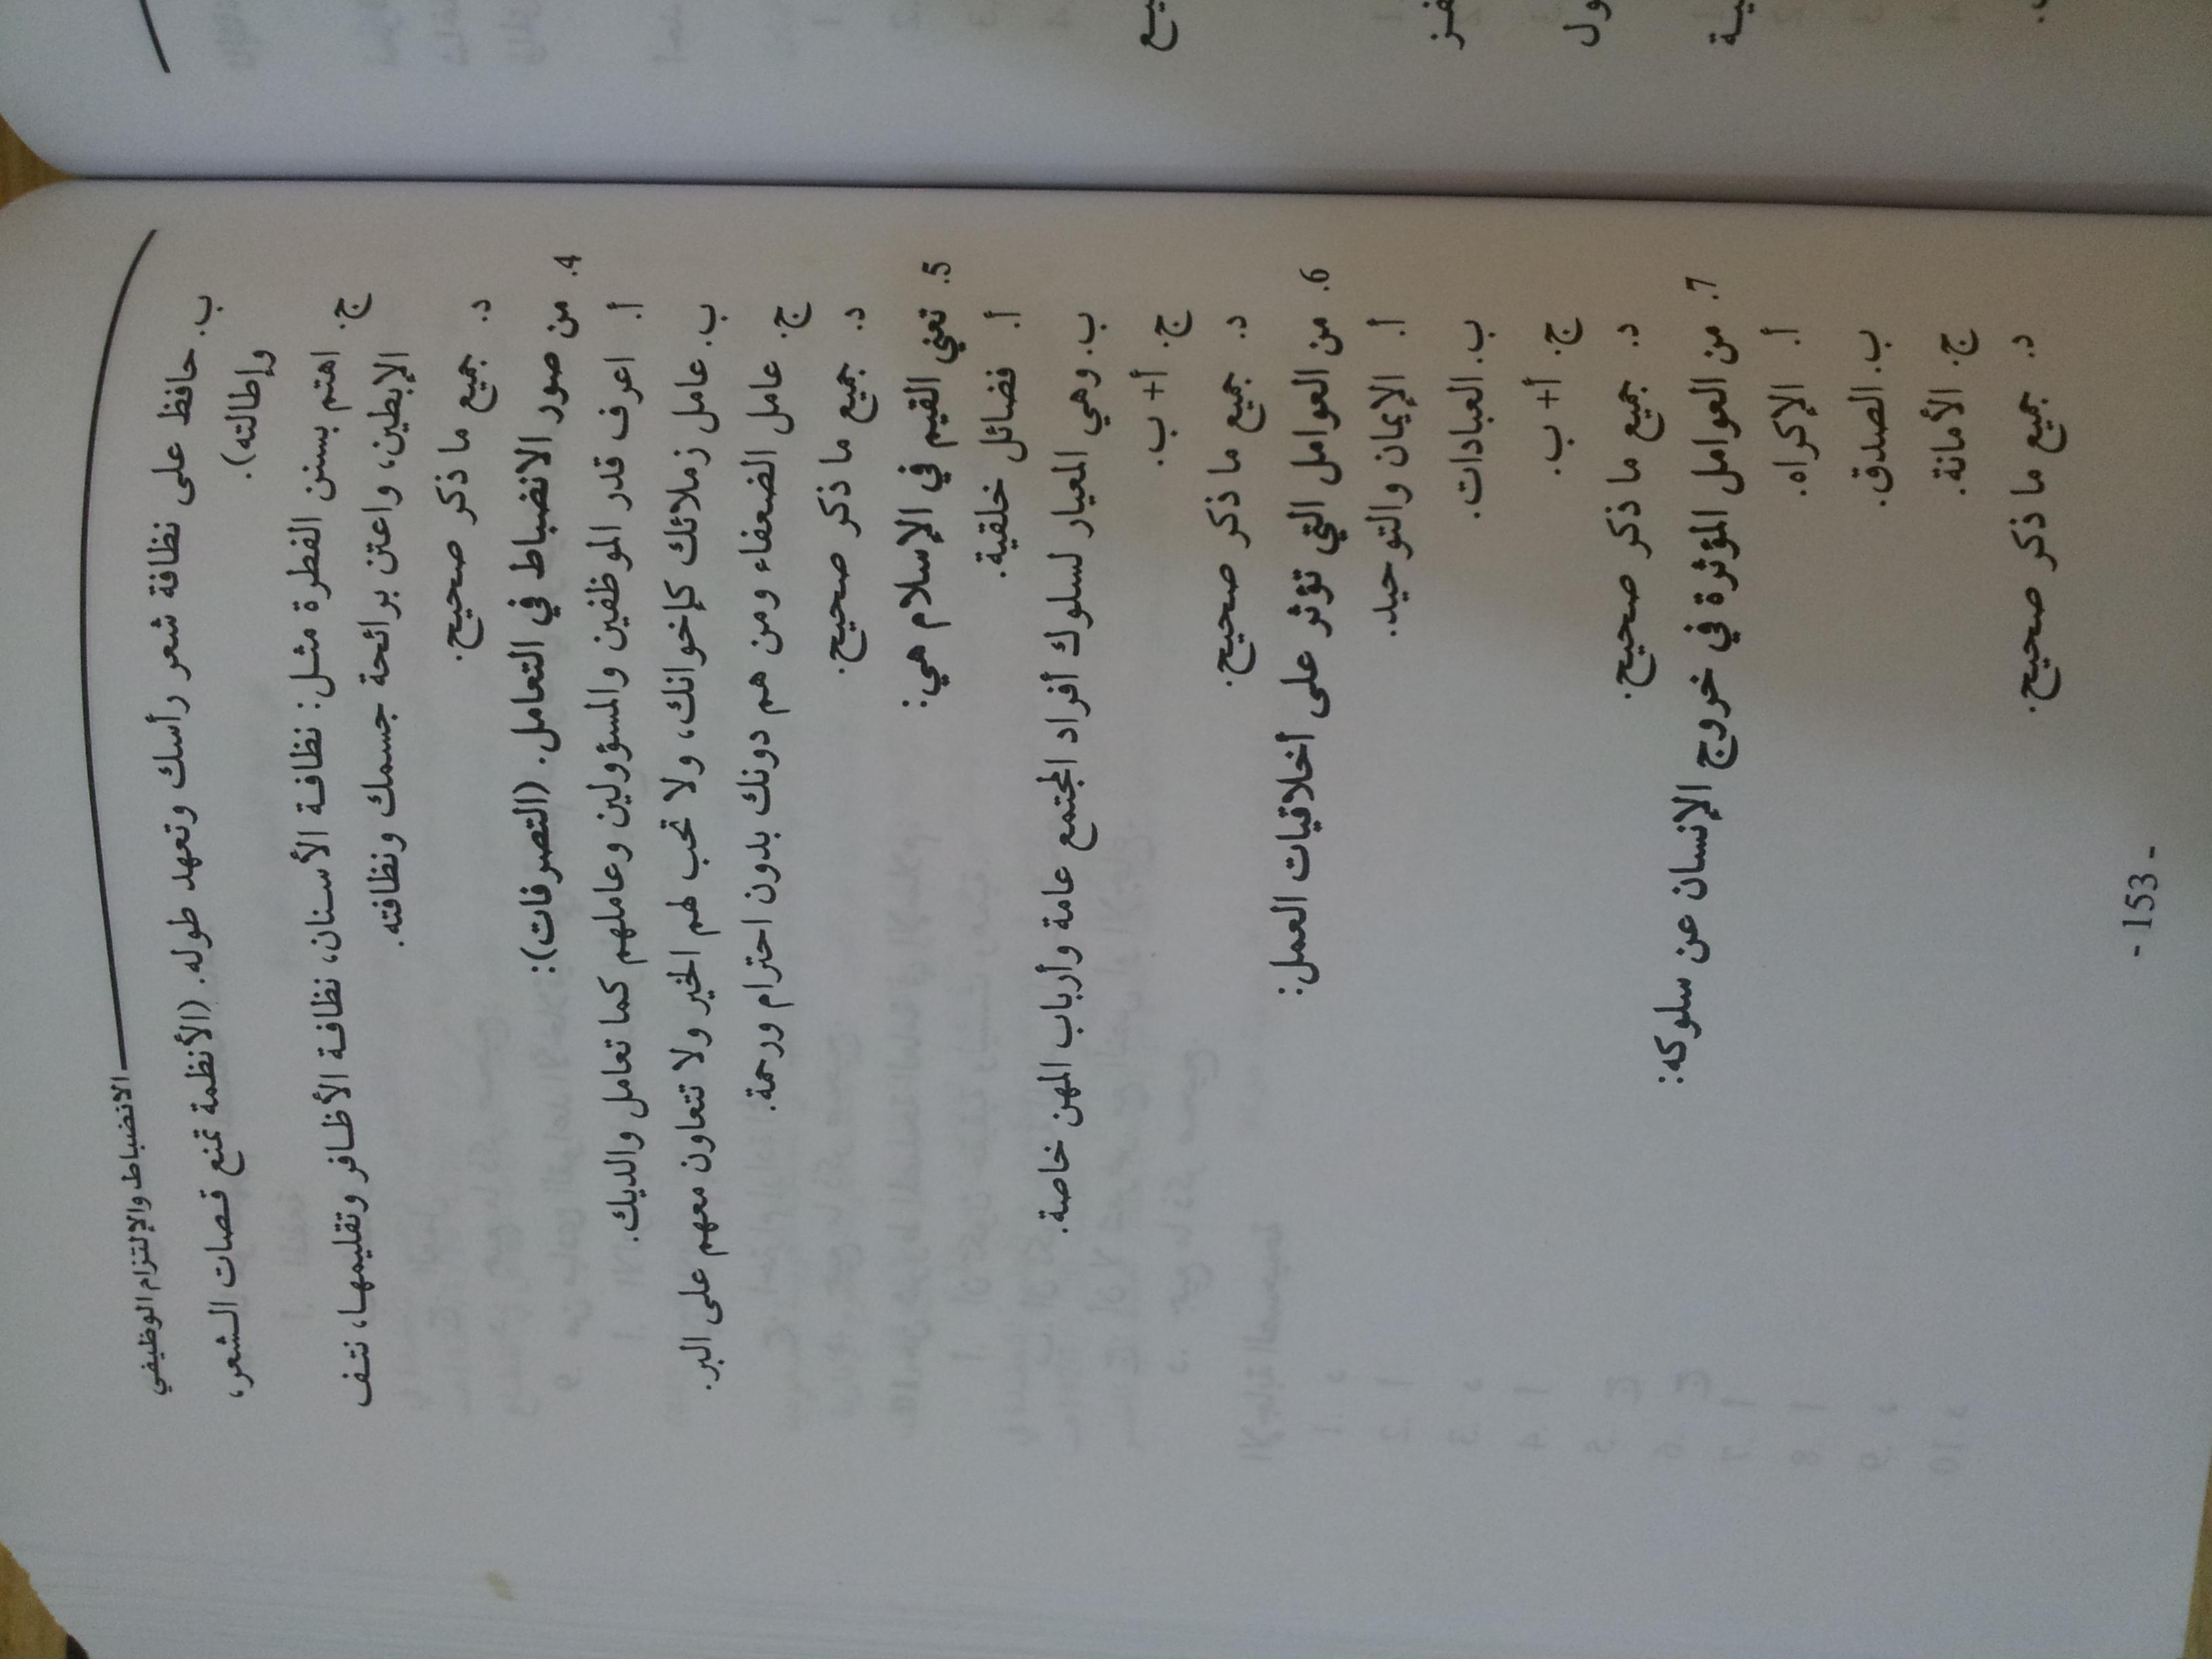 الانضباط والإلتزام الوظيفي
ب. حافظ على نظافة شعر رأسك وتعهد طوله. (الأنظمة تمنع قصات الشعر،
وإطالته).
ج. اهتم بسنن الفطرة مثل: نظافة الأسنان، نظافة الأظافر وتقليمها، نتف
الإبطين، واعتن برائحة جسمك ونظافته.
د. جميع ما ذكر صحيح.
4. من صور الانضباط في التعامل. (التصرفات):
أ. اعرف قدر الموظفين والمسؤولين وعاملهم كما تعامل والديك.
ب. عامل زملائك كإخوانك، ولا تحب لهم الخير ولا تتعاون معهم على البر.
ج. عامل الضعفاء ومن هم دونك بدون احترام ورحمة.
د. جميع ما ذكر صحيح.
5. تعني القيم في الإسلام هي:
أ. فضائل خلقية.
ب. وهي المعيار لسلوك أفراد المجتمع عامة وأرباب المهن خاصة.
ج. أ + ب.
د. جميع ما ذكر صحيح.
6. من العوامل التي تؤثر على أخلاقيات العمل:
أ. الإيمان والتوحيد.
ب. العبادات.
ج. أ + ب.
د. جميع ما ذكر صحيح.
7. من العوامل المؤثرة في خروج الإنسان عن سلوكه:
أ. الإكراه.
ب. الصدق.
ج. الأمانة.
د. جميع ما ذكر صحيح.
- 153 -